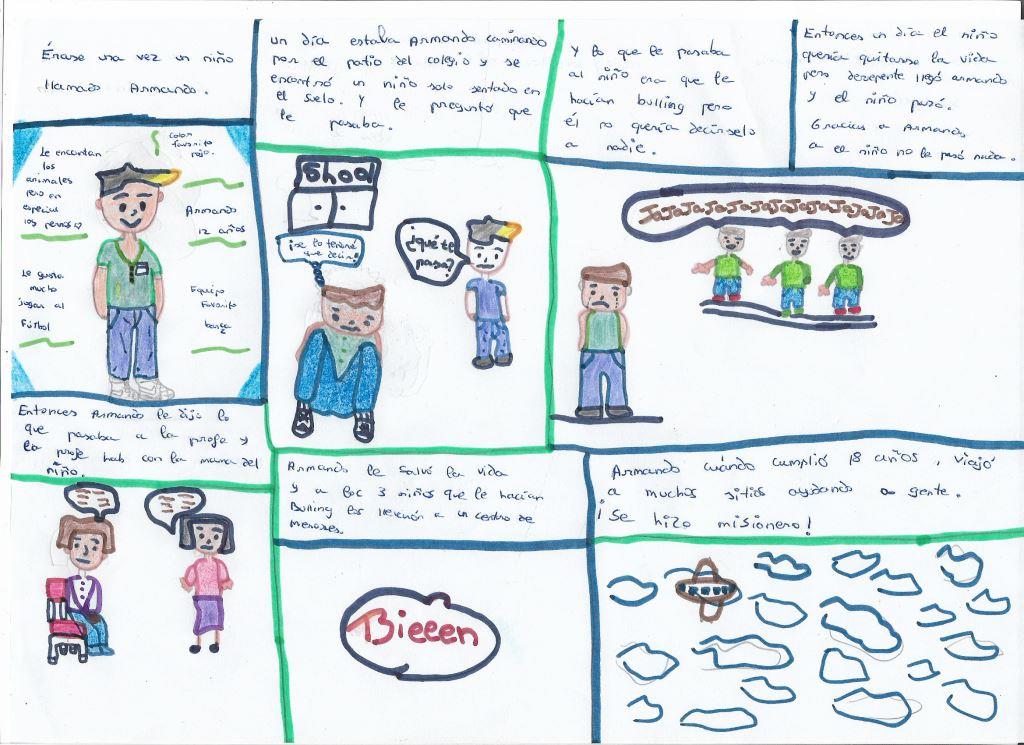 Érase una vez un niño
llamado Armando.
Le encantan
los
animales
pero en
especial
los perros
Le gusta
mucho
jugar al
Fútbol
Color
favorito
rojo.
Armando
12 años
Equipo
Favorito
barça
un día estaba Armando caminando
por el patio del colegio y se
encontró un niño solo sentado en
el suelo. Y le preguntó que
le pasaba.
Shool
¡se lo tendré
que decir!
¿qué te
pasa?
Y lo que le pasaba
al niño era que le
hacían bulling pero
él no quería decírselo
a nadie.
Entonces un día el niño
quería quitarse la vida
pero derepente llegó armando
y el niño paró.
Gracias a Armando
a el niño no le pasó nada.
JaJaJaJaJaJaJaJaJaJaJaJa
Entonces Armando le dijo lo
que pasaba a la profe y
la profe hab con la mama del
niño.
Armando le salvó la vida
y a los 3 niños que le hacían
Bulling los llevaron a un centro de
menores.
Bieeen
Armando cuándo cumplió 18 años, viajó
a muchos sitios ayudando a gente.
¡Se hizo misionero!